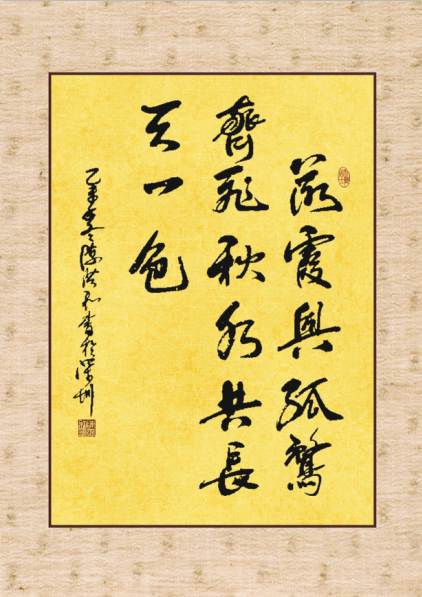 落霞與孤鶩
齊飛秋水共長
天一色
乙未冬陳洪和書於深圳